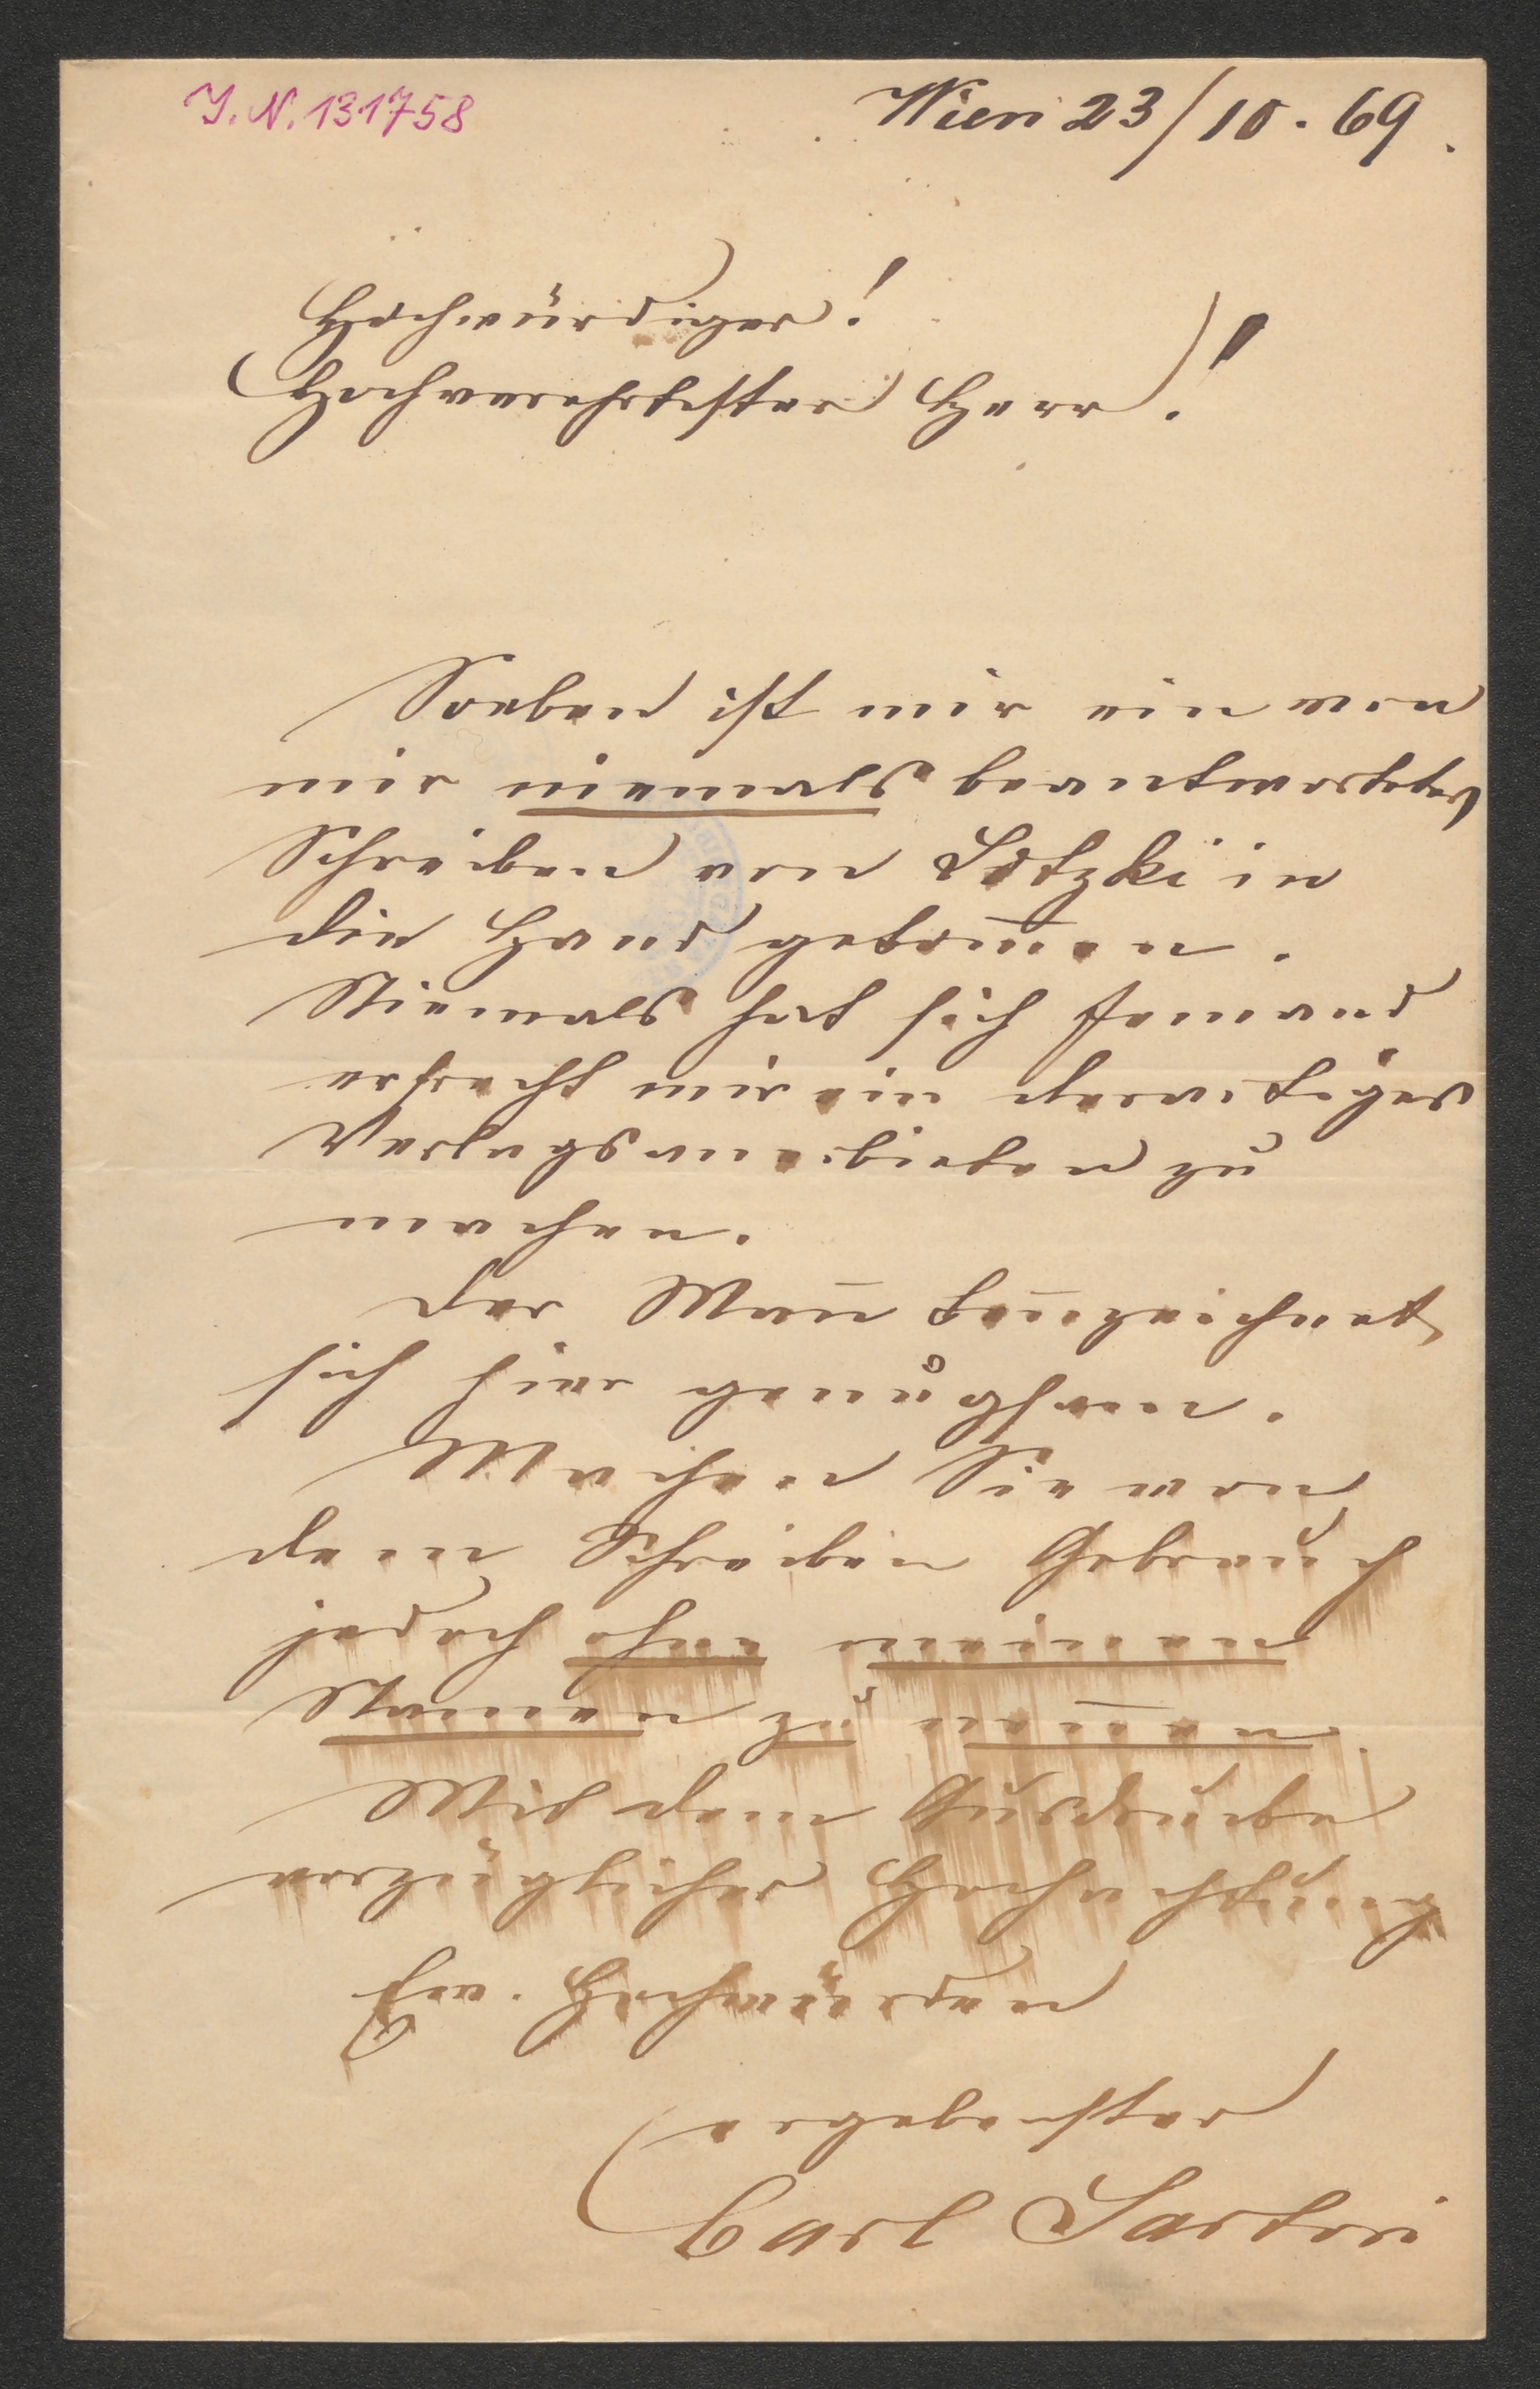 I. N. 131758
Wien 23/10. 69.
Hochwürdiger!
Hochverehrtester Herr!
Soeben ist mir ein von
mir niemals beantwortetes
Schreiben von Lotzki in
die Hand gekom̅en.
Niemals hat sich Jemand
erfrecht mir ein derartiges
Verlagsanerbieten zu
machen.
Der Man̅ ken̅zeichnet
sich hier genugsam.
Machen Sie von
dem Schreiben Gebrauch
jedoch ohne meinen
Namen zu nen̅en.
Mit dem Ausdrucke
vorzüglicher Hochachtung
Ew. Hochwürden
ergebenster
Carl Sartori